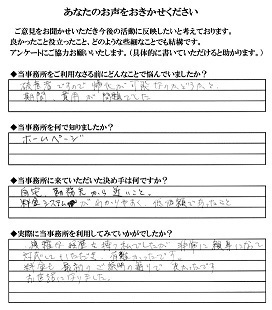 あなたのお声をおきかせください
ご意見をお聞かせいただき今後の活動に反映したいと考えております。
良かったこと役立ったこと、どのような些細なことでも結構です。
アンケートにご協力お願いいたします。(具体的に書いていただけると助かります。)
◆当事務所をご利用なさる前にどんなことで悩んでいましたか?
ですので 帰化が可能なのどうかと、
期間、費用が問題でした
◆当事務所を何で知りましたか?
ホームページ
◆当事務所に来ていただいた決め手は何ですか?
自宅、勤務先から近いこと。
料金システムがわかりやすく、低価額であったこと
◆実際に当事務所を利用してみていかがでしたか?
でしたが 非常に 親身になって
対応していただき、
料金も 最初の ご説明の通りで 良かったです
お世話になりました。